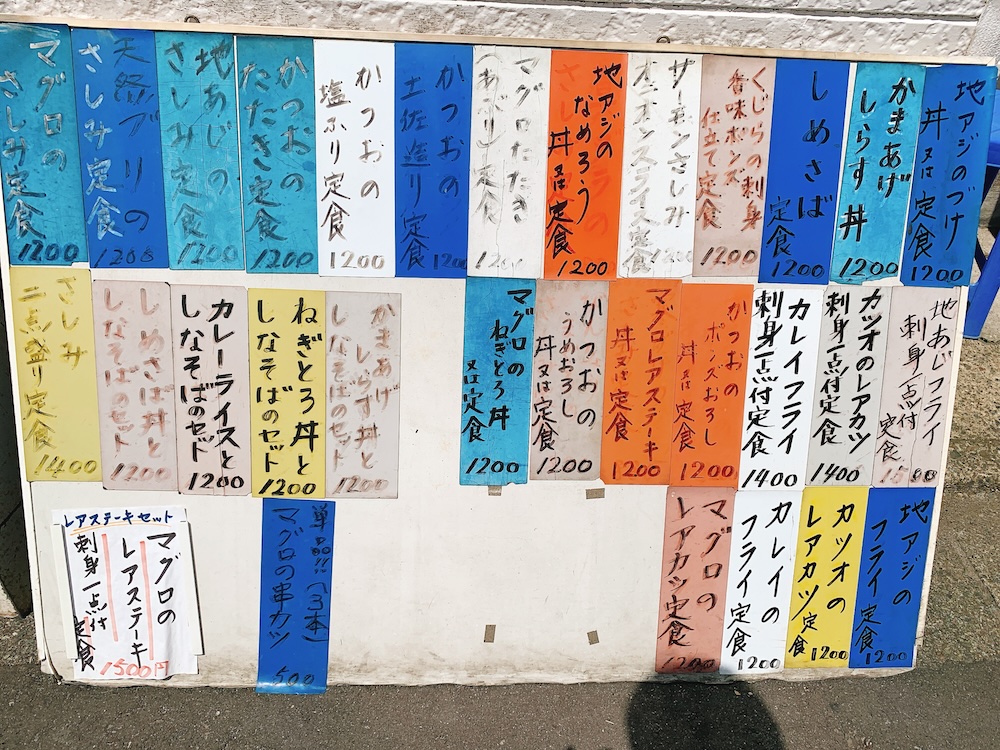 地アジのづけ
丼又は定食
1200
かまあげ
しらす丼
1200
しめさば
定食
1200
くじらの刺身
香味ポンズ
仕立て定食
1200
サーモンさしみ
オニオンスライス定食
1200
地アジの
なめろう
丼又は定食
1200
マグロたたき
(あぶり)定食
かつおの
土佐造り定食
1200
かつおの
塩ふり定食
1200
かつおの
たたき定食
1200
地あじの
さしみ定食
1200
天然ブリの
さしみ定食
1200
マグロの
さしみ定食
1200
地あじフライ
刺身一点付
定食
カツオのレアカツ
刺身一点付定食
1400
カレイフライ
刺身一点付定食
1400
かつおの
ポンズおろし
丼又は定食
1200
マグロレアステーキ
丼又は定食
1200
かつおの
うめおろし
丼又は定食
1200
マグロの
ねぎとろ丼
又は定食
1200
かまあげ
しらす丼と
しなそばのセット
1200
ねぎとろ丼と
しなそばのセット
1200
カレーライスと
しなそばのセット
1200
しめさば丼と
しなそばのセット
1200
さしみ
二点盛り定食
1400
地アジの
フライ定食
1200
カツオの
レアカツ定食
1200
カレイの
フライ定食
1200
マグロの
レアカツ定食
1200
単品!!(3本)
マグロの串カツ
500
レアステーキセット
マグロの
レアステーキ
刺身一点付
定食
1500円